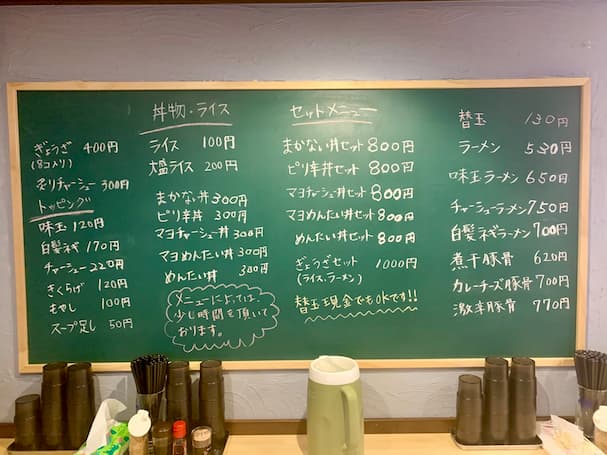 ぎょうざ 400円
(8コ入り)
炙りチャーシュー 300円
トッピング
味玉 120円
白髪ネギ 170円
チャーシュー 220円
きくらげ 120円
もやし 100円
スープ足し 50円
丼物・ライス
ライス 100円
大盛ライス 200円
まかない丼 300円
ピリ辛丼 300円
マヨチャーシュー丼 300円
マヨめんたい丼 300円
めんたい丼 300円
メニューによっては、
少し時間を頂いて
おります。
セットメニュー
まかない丼セット 800円
ピリ辛丼セット 800円
マヨチャーシュー丼セット 800円
マヨめんたい丼セット 800円
めんたい丼セット 800円
ぎょうざセット 1000円
(ライス、ラーメン)
替玉現金でもOKです!!
替玉 130円
ラーメン 530円
味玉ラーメン 650円
チャーシューラーメン 750円
白髪ネギラーメン 700円
煮干豚骨 620円
カレーチーズ豚骨 700円
激辛豚骨 770円